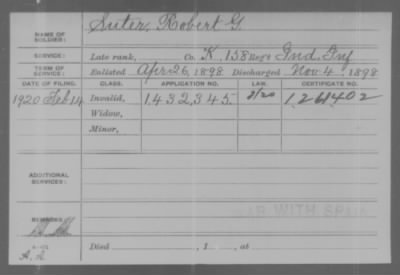 NAME OF SOLDIER: Suter, Robert G.
SERVICE: Late rank, Co. K, 158 Reg't Ind. Inf
TERM OF SERVICE: Enlisted Apr 26, 1898 Discharged Nov 4, 1898
DATE OF FILING. CLASS. APPLICATION NO. LAW. CERTIFICATE NO.
1920 Feb 14 Invalid, 1,432,345 1,261402
Widow,
Minor,
ADDITIONAL SERVICES:
WAR WITH SPAIN
REMARKS:
Died , 1 , at